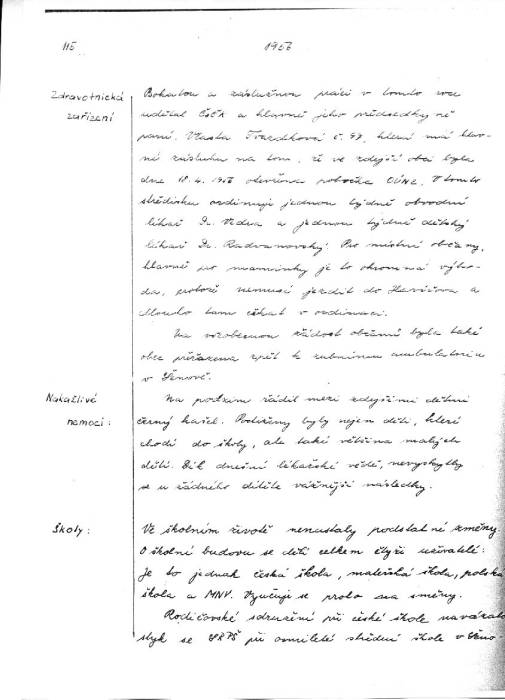 115
1956
Zdravotnická
zařízení
Bohatou a záslužnou práci v tomto roce
udělal ČSČK a hlavně jeho předsedkyně
paní Vlasta Tvardková č. 97, která má hlav-
ní zásluhu na tom, že ve zdejší obci byla
dne 18.4. 1956 otevřena pobočka OÚNZ. V tomto
středisku ordinuje jednou týdně obvodní
lékař Dr. Vedra a jednou týdně dětský
lékař Dr. Radvanovský. Pro místní občany,
hlavně pro maminky je to ohromná výho-
da, protože nemusí jezdit do Havířova a
dlouho tam čekat v ordinaci.
Na všeobecnou žádost občanů byla také
obec přiřazena zpět k zubnímu ambulatoriu
v Šenově.
Nakažlivé
nemoci:
Na podzim řádil mezi zdejšími dětmi
černý kašel. Postiženy byly nejen děti, které
chodí do školy, ale také většina malých
dětí. Dík dnešní lékařské vědě, nevyskytly
se u žádného dítěte vážnější následky.
Školy:
Ve školním životě nenastaly podstatné změny.
O školní budovu se dělí celkem čtyři uživatelé:
Je to jednak česká škola, mateřská škola, polská
škola a MNV. Vyučuje se proto na směny.
Rodičovské sdružení při české škole navázalo
styk se SRPŠ při osmileté střední škole v Šeno-